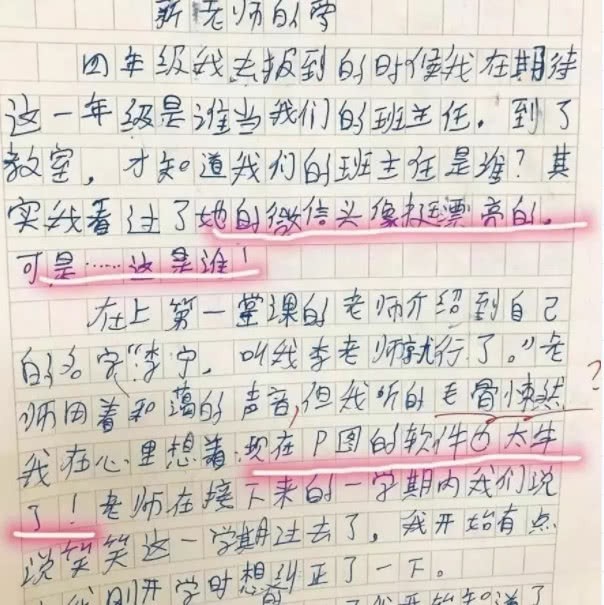 新老师的
四年级我去报到的时候我在期待
这一年级是谁当我们的班主任。到了
教室，才知道我们的班主任是谁？其
实我看过了她的微信头像挺漂亮的。
可是……这是谁！
在上第一堂课的老师介绍到自己
的名字“李宁，叫我李老师就行了。”老
师用着和蔼的声音,但我听的毛骨悚然
?
我在心里想着:现在P图的软件 太牛
了！老师在接下来的一学期内我们说
说笑笑这一学期过去了，我开始有点
我刚开学时想 纠正了一下。